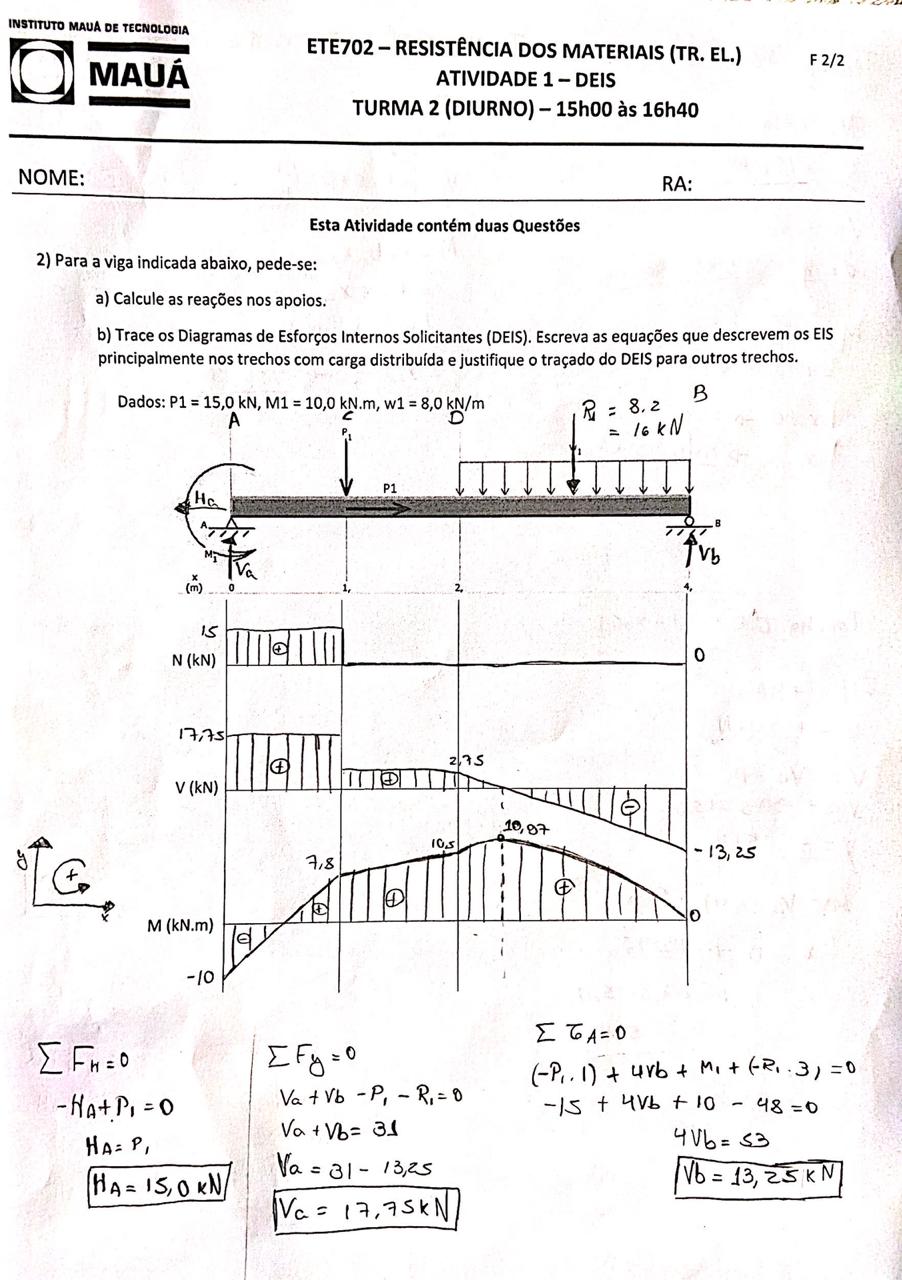 INSTITUTO MAUÁ DE TECNOLOGIA
MAUÁ
ETE702 – RESISTÊNCIA DOS MATERIAIS (TR. EL.)
F 2/2
ATIVIDADE 1 – DEIS
TURMA 2 (DIURNO) – 15h00 às 16h40
NOME:
RA:
Esta Atividade contém duas Questões
2) Para a viga indicada abaixo, pede-se:
a) Calcule as reações nos apoios.
b) Trace os Diagramas de Esforços Internos Solicitantes (DEIS). Escreva as equações que descrevem os EIS
principalmente nos trechos com carga distribuída e justifique o traçado do DEIS para outros trechos.
Dados: P1 = 15,0 kN, M1 = 10,0 kN.m, w1 = 8,0 kN/m
R1 = 8.2
= 16 kN
B
A
C
D
P1
P1
Ha
A
B
M1
Va
Vb
x
(m)
0
1,
2,
4,
15
+
N (kN)
0
17,75
+
+
2,75
V (kN)
-
-13,25
7,8
10,5
10,97
y
+
x
M (kN.m)
-
+
+
+
0
-10
∑ FH=0
-HA+P1=0
HA=P1
HA=15,0 kN
∑ Fy=0
Va+Vb-P1-R1=0
Va+Vb=31
Va=31-13,25
Va=17,75kN
∑ τA=0
(-P1.1)+4Vb+M1+(-R1.3)=0
-15+4Vb+10-48=0
4Vb=53
Vb=13,25kN